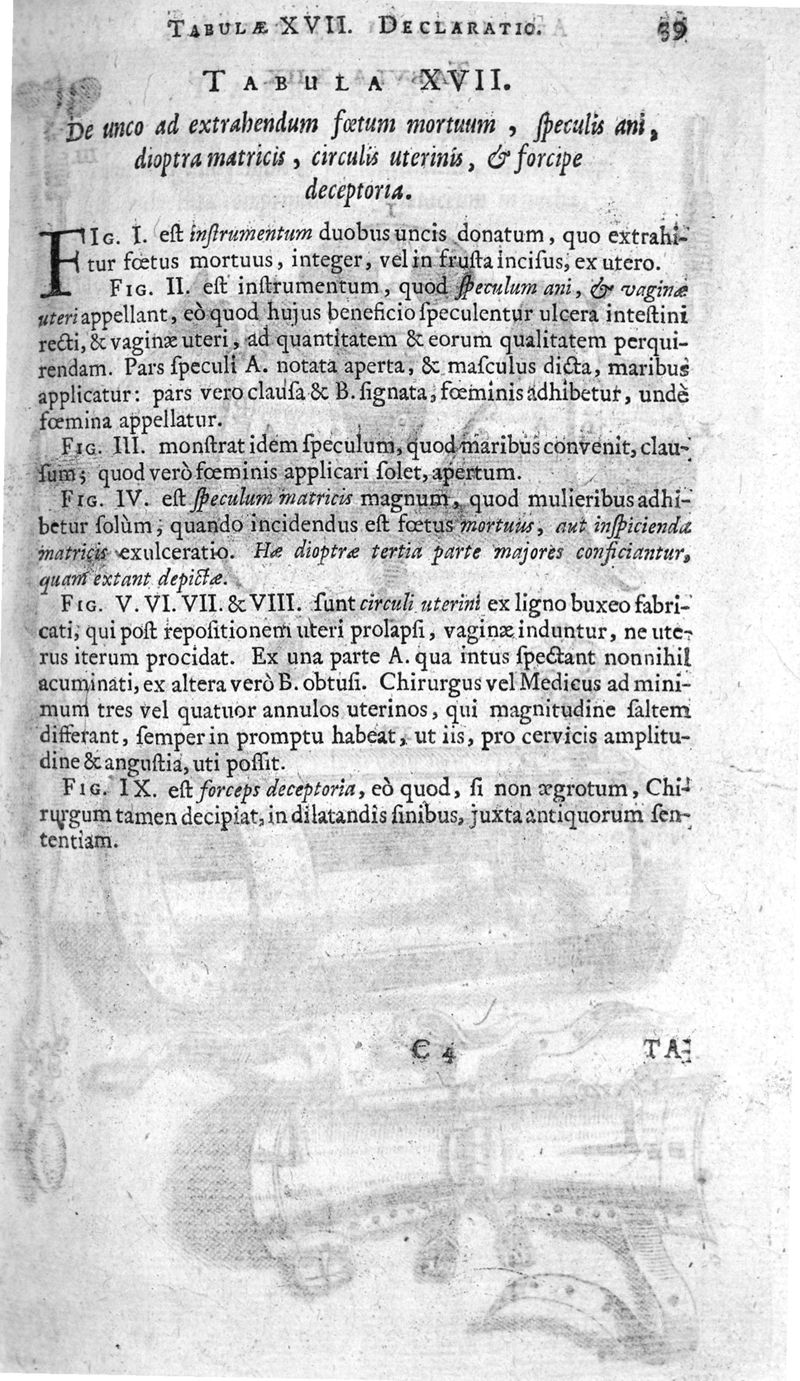 TABULÆ XVII. DECLARATIO. 59
TABULA XVII.
De unco ad extrahendum fœtum mortuum , ſpeculis ani,
dioptra matricis , circulis uterinis, & forcipe
deceptoria.
FIG. I. eſt inſtrumentum duobus uncis donatum, quo extrahi-
tur fœtus mortuus, integer, vel in fruſta inciſus, ex utero.
FIG. II. eſt inſtrumentum, quod ſpeculum ani, & vaginæ
uteri appellant, eò quod hujus beneficio ſpeculentur ulcera inteſtini
recti, & vaginæ uteri, ad quantitatem & eorum qualitatem perqui-
rendam. Pars ſpeculi A. notata aperta, & maſculus dicta, maribus
applicatur: pars vero clauſa & B. ſignata, fœminis adhibetur, undè
fœmina appellatur.
FIG. III. monſtrat idem ſpeculum, quod maribus convenit, clau-
ſum; quod verò fœminis applicari ſolet, apertum.
FIG. IV. eſt ſpeculum matricis magnum, quod mulieribus adhi-
betur ſolùm, quando incidendus eſt fœtus mortuus, aut inſpicienda
matricis exulceratio. Hæ dioptræ tertia parte majores conficiantur,
quam extant depictæ.
FIG. V. VI. VII. & VIII. ſunt circuli uterini ex ligno buxeo fabri-
cati, qui poſt repoſitionem uteri prolapſi, vaginæ induntur, ne ute-
rus iterum procidat. Ex una parte A. qua intus ſpectant nonnihil
acuminati, ex altera verò B. obtuſi. Chirurgus vel Medicus ad mini-
mum tres vel quatuor annulos uterinos, qui magnitudine ſaltem
differant, ſemper in promptu habeat, ut iis, pro cervicis amplitu-
dine & anguſtia, uti poſſit.
FIG. IX. eſt forceps deceptoria, eò quod, ſi non ægrotum, Chi-
rurgum tamen decipiat, in dilatandis ſinibus, juxta antiquorum ſen-
tentiam.
C 4 TA-